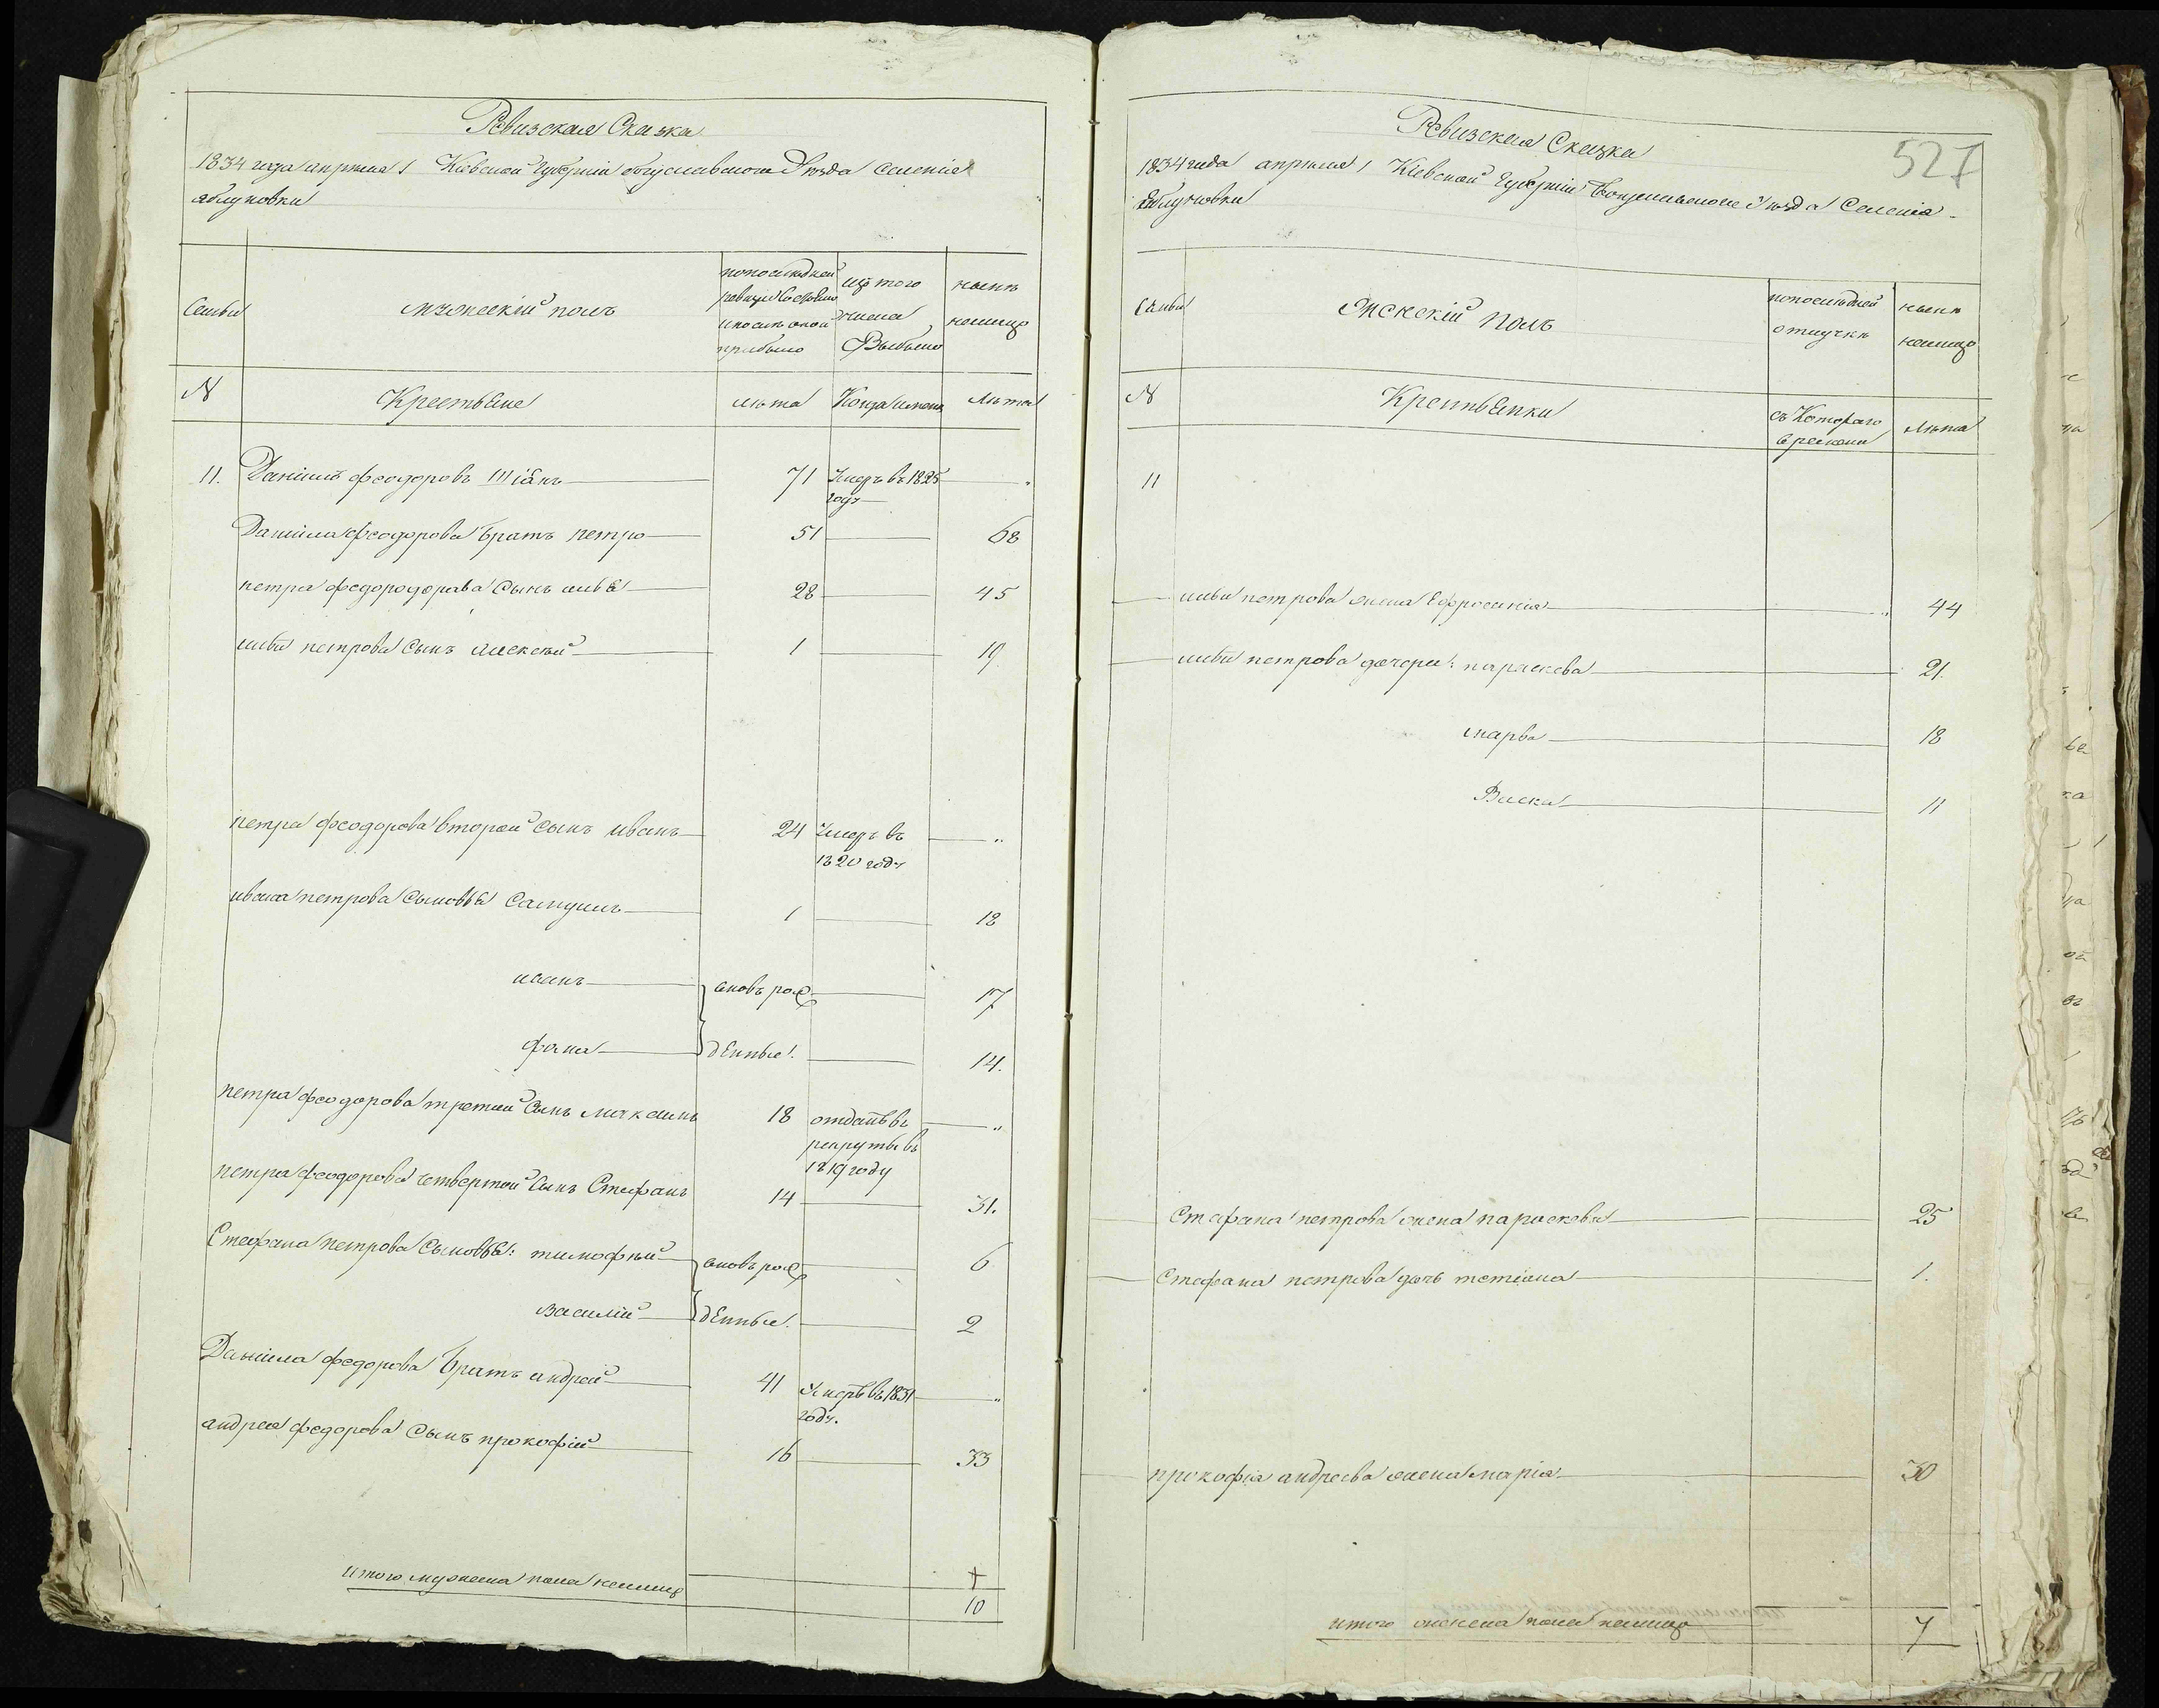 Ревизская Сказка
1834 года апреля 1 Киевской Губернии богуславского Уезда Селения
яблуновки
Семьи
мужеский полъ
попоследней ревизии Состояло и после оной прибыло
изъ того числа Выбыло
ныне налицо
N
Крестьяне
лета
Когда имено
Лета
11. Даниилъ феодоровъ 71 Умеръ въ 1825 году „
Даниила феодорова братъ петро 51 68
петра федородорава Сынъ илья 28 45
ильи петрова Сынъ алексей 1 19
петра феодорова второй сынъ иванъ 24 Умеръ въ 1820 году „
ивана петрова Сыновья Самуилъ 1 18
иванъ вновь рож 17
фома денные. 14.
петра феодорова третий Сынъ максимъ 18 отданъ въ рекруты въ 1819 году „
петра феодорова четвертой Сынъ Стефанъ 14 31.
Стефана петрова Сыновья: тимофей вновь рож 6
василий денные. 2
Даниила федорова братъ андрей 41 Умеръ въ 1831 году. „
андрея федорова Сынъ прокофий 16 33
итого мужеска пола налицо 10
Ревизская Сказка
527
1834 года апреля 1 Киевской Губернии Богуславского Уезда Селения
Яблуновки
Семьи
Женский полъ
попоследней
отлучке
ныне
налицо
N
Крестьянки
съ Котораго
времени
Лета
11
ильи петрова жена Ефросиния „ 44
ильи петрова дочери: параскева 21.
марва 18
Васка 11
Стефана петрова жена параскева 25
Стефана петрова дочь тетиана 1.
прокофия андреева жена мария 30
итого женска пола налицо 7